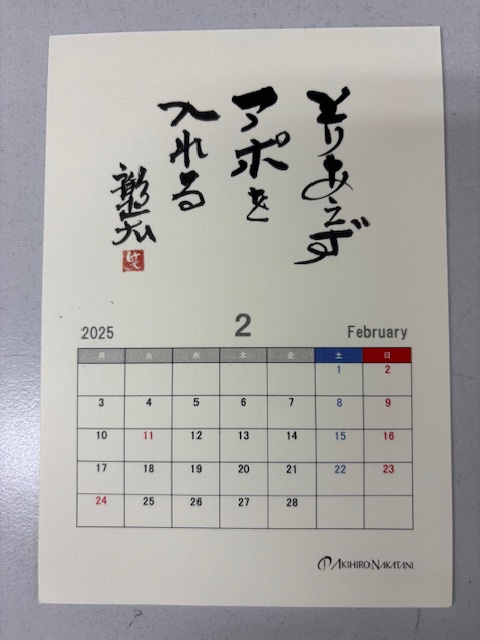 とりあえず
アポを
入れる
彰宏
笑
2025 2 February
月 火 水 木 金 土 日
1 2
3 4 5 6 7 8 9
10 11 12 13 14 15 16
17 18 19 20 21 22 23
24 25 26 27 28
AKIHIRO NAKATANI